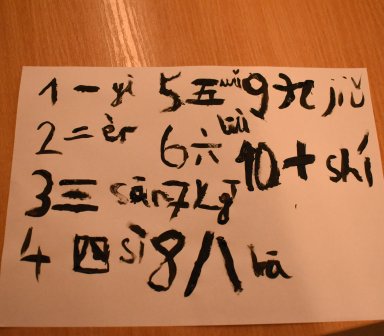 1 一 yi
2 二 èr
3 三 sān
4 四 sì
5 五 wǔ
6 六 liù
7
8 八 bā
9 九 jiǔ
10 十 shí